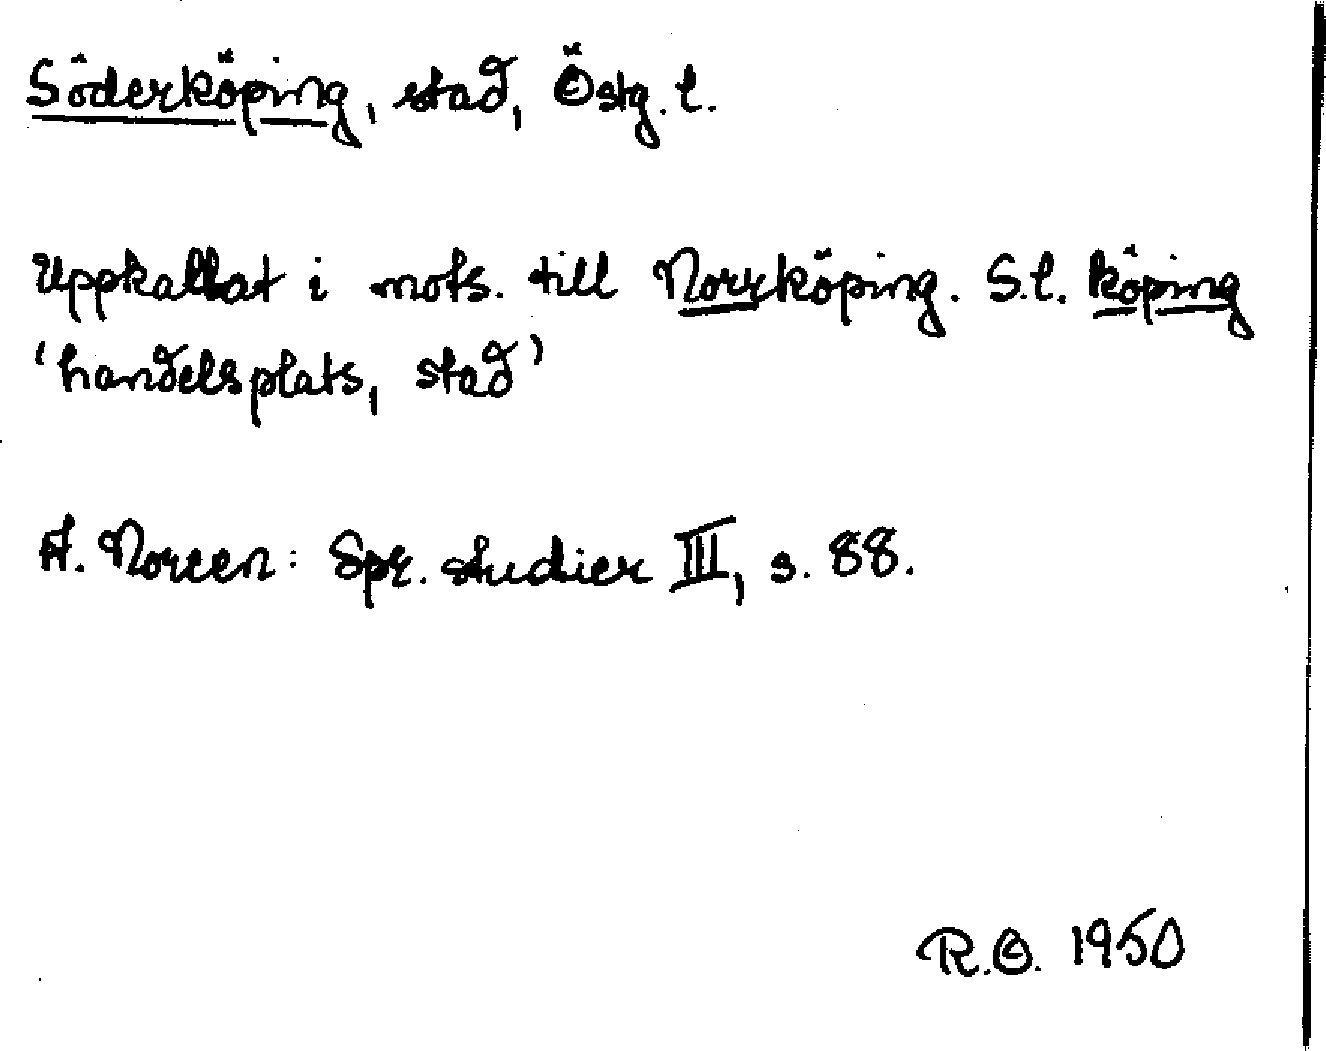 Söderköping, stad, Östg. l.
Uppkallat i mots. till Norrköping. S.l. köping
'handelsplats, stad'
A. Noreen: Spr. studier III, s. 88.
R.O. 1950